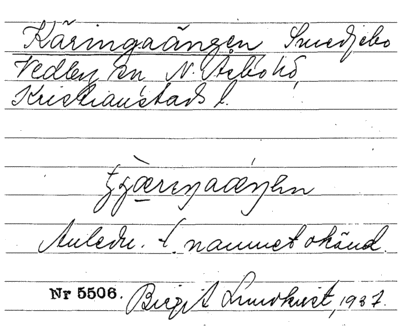 Käringaängen Smedjebo
Vedby sn N. Åsbo hd,
Kristianstads l.
Anledn. t. namnet okänd.
Nr 5506. Birgit Lundkvist, 1937.